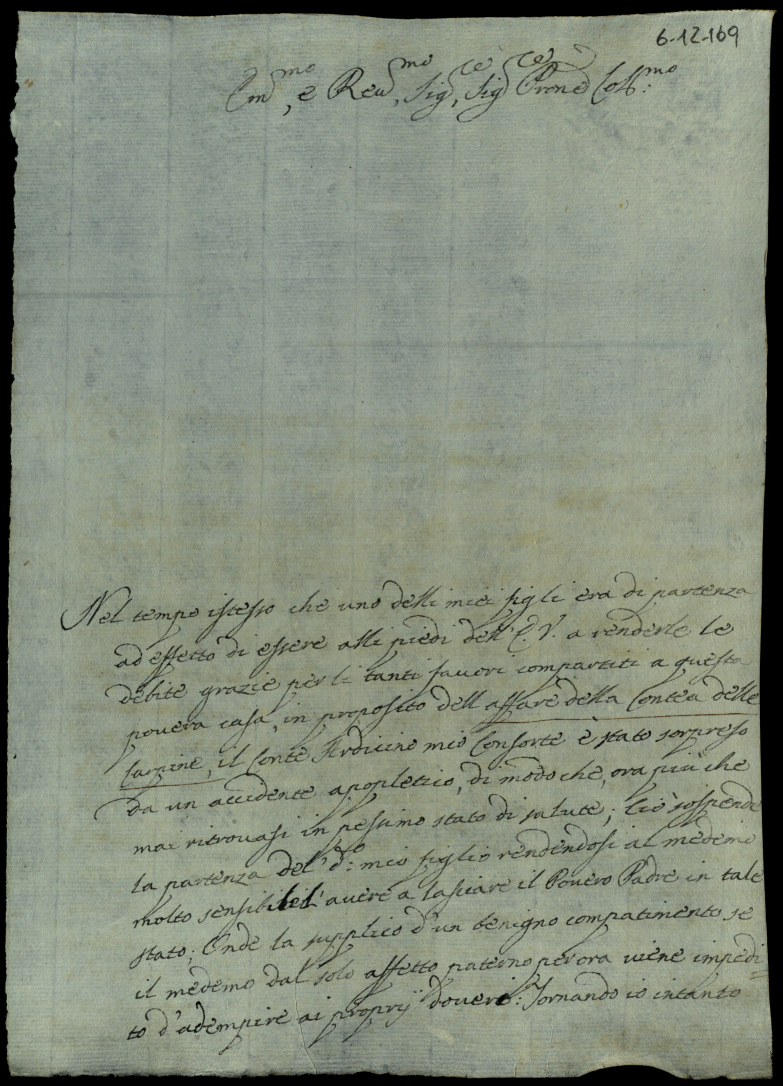 6-12-169
Em.mo, e Reu.mo Sig.re, Sig.re Prone Coll.mo
Nel tempo istesso che uno delli miei figli era di partenza
ad effetto di essere alli piedi dell'E.V. a renderle le
debite grazie per li tanti fauori compartiti a questa
pouera casa, in proposito dell affare della Contea delle
Carpine, il Conte Ardicino mio Consorte è stato sorpreso
da un accidente apopletico, di modo che, ora più che
mai ritrouasi in pessimo stato di salute; Ciò sospende
la partenza del' d:to mio figlio rendendosi al medemo
molto sensibile l'auere a lasciare il Pouero Padre in tale
stato; Onde la supplico d'un benigno compatimento se
il medemo dal solo affetto paterno per ora uiene impedi=
to d'adempire ai proprÿ douere: Tornando io intanto